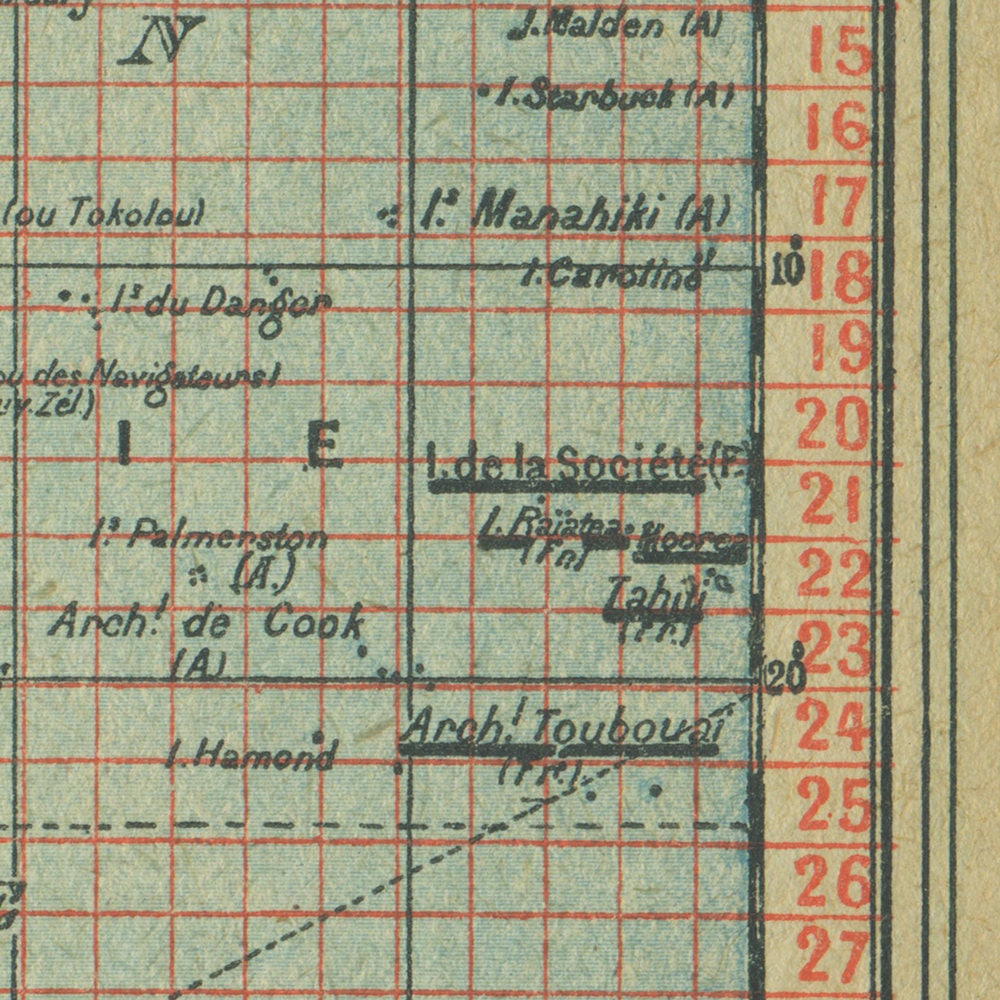 N
I. Malden (A)
15
I. Starbuck (A)
16
17
(ou Tokolou)
Iˢ Manahiki (A)
10
18
I. Caroline
Iˢ du Danger
19
ou des Navigateurs)
20
I E
I. de la Société (F.
21
I. Raïatea
Moorea
(Fr)
Iˢ Palmerston
(A.)
22
Tahiti
(Fr.)
Archˡ. de Cook
(A)
23
20
24
Archˡ. Toubouaï
(Fr.)
I. Hamond
25
26
27